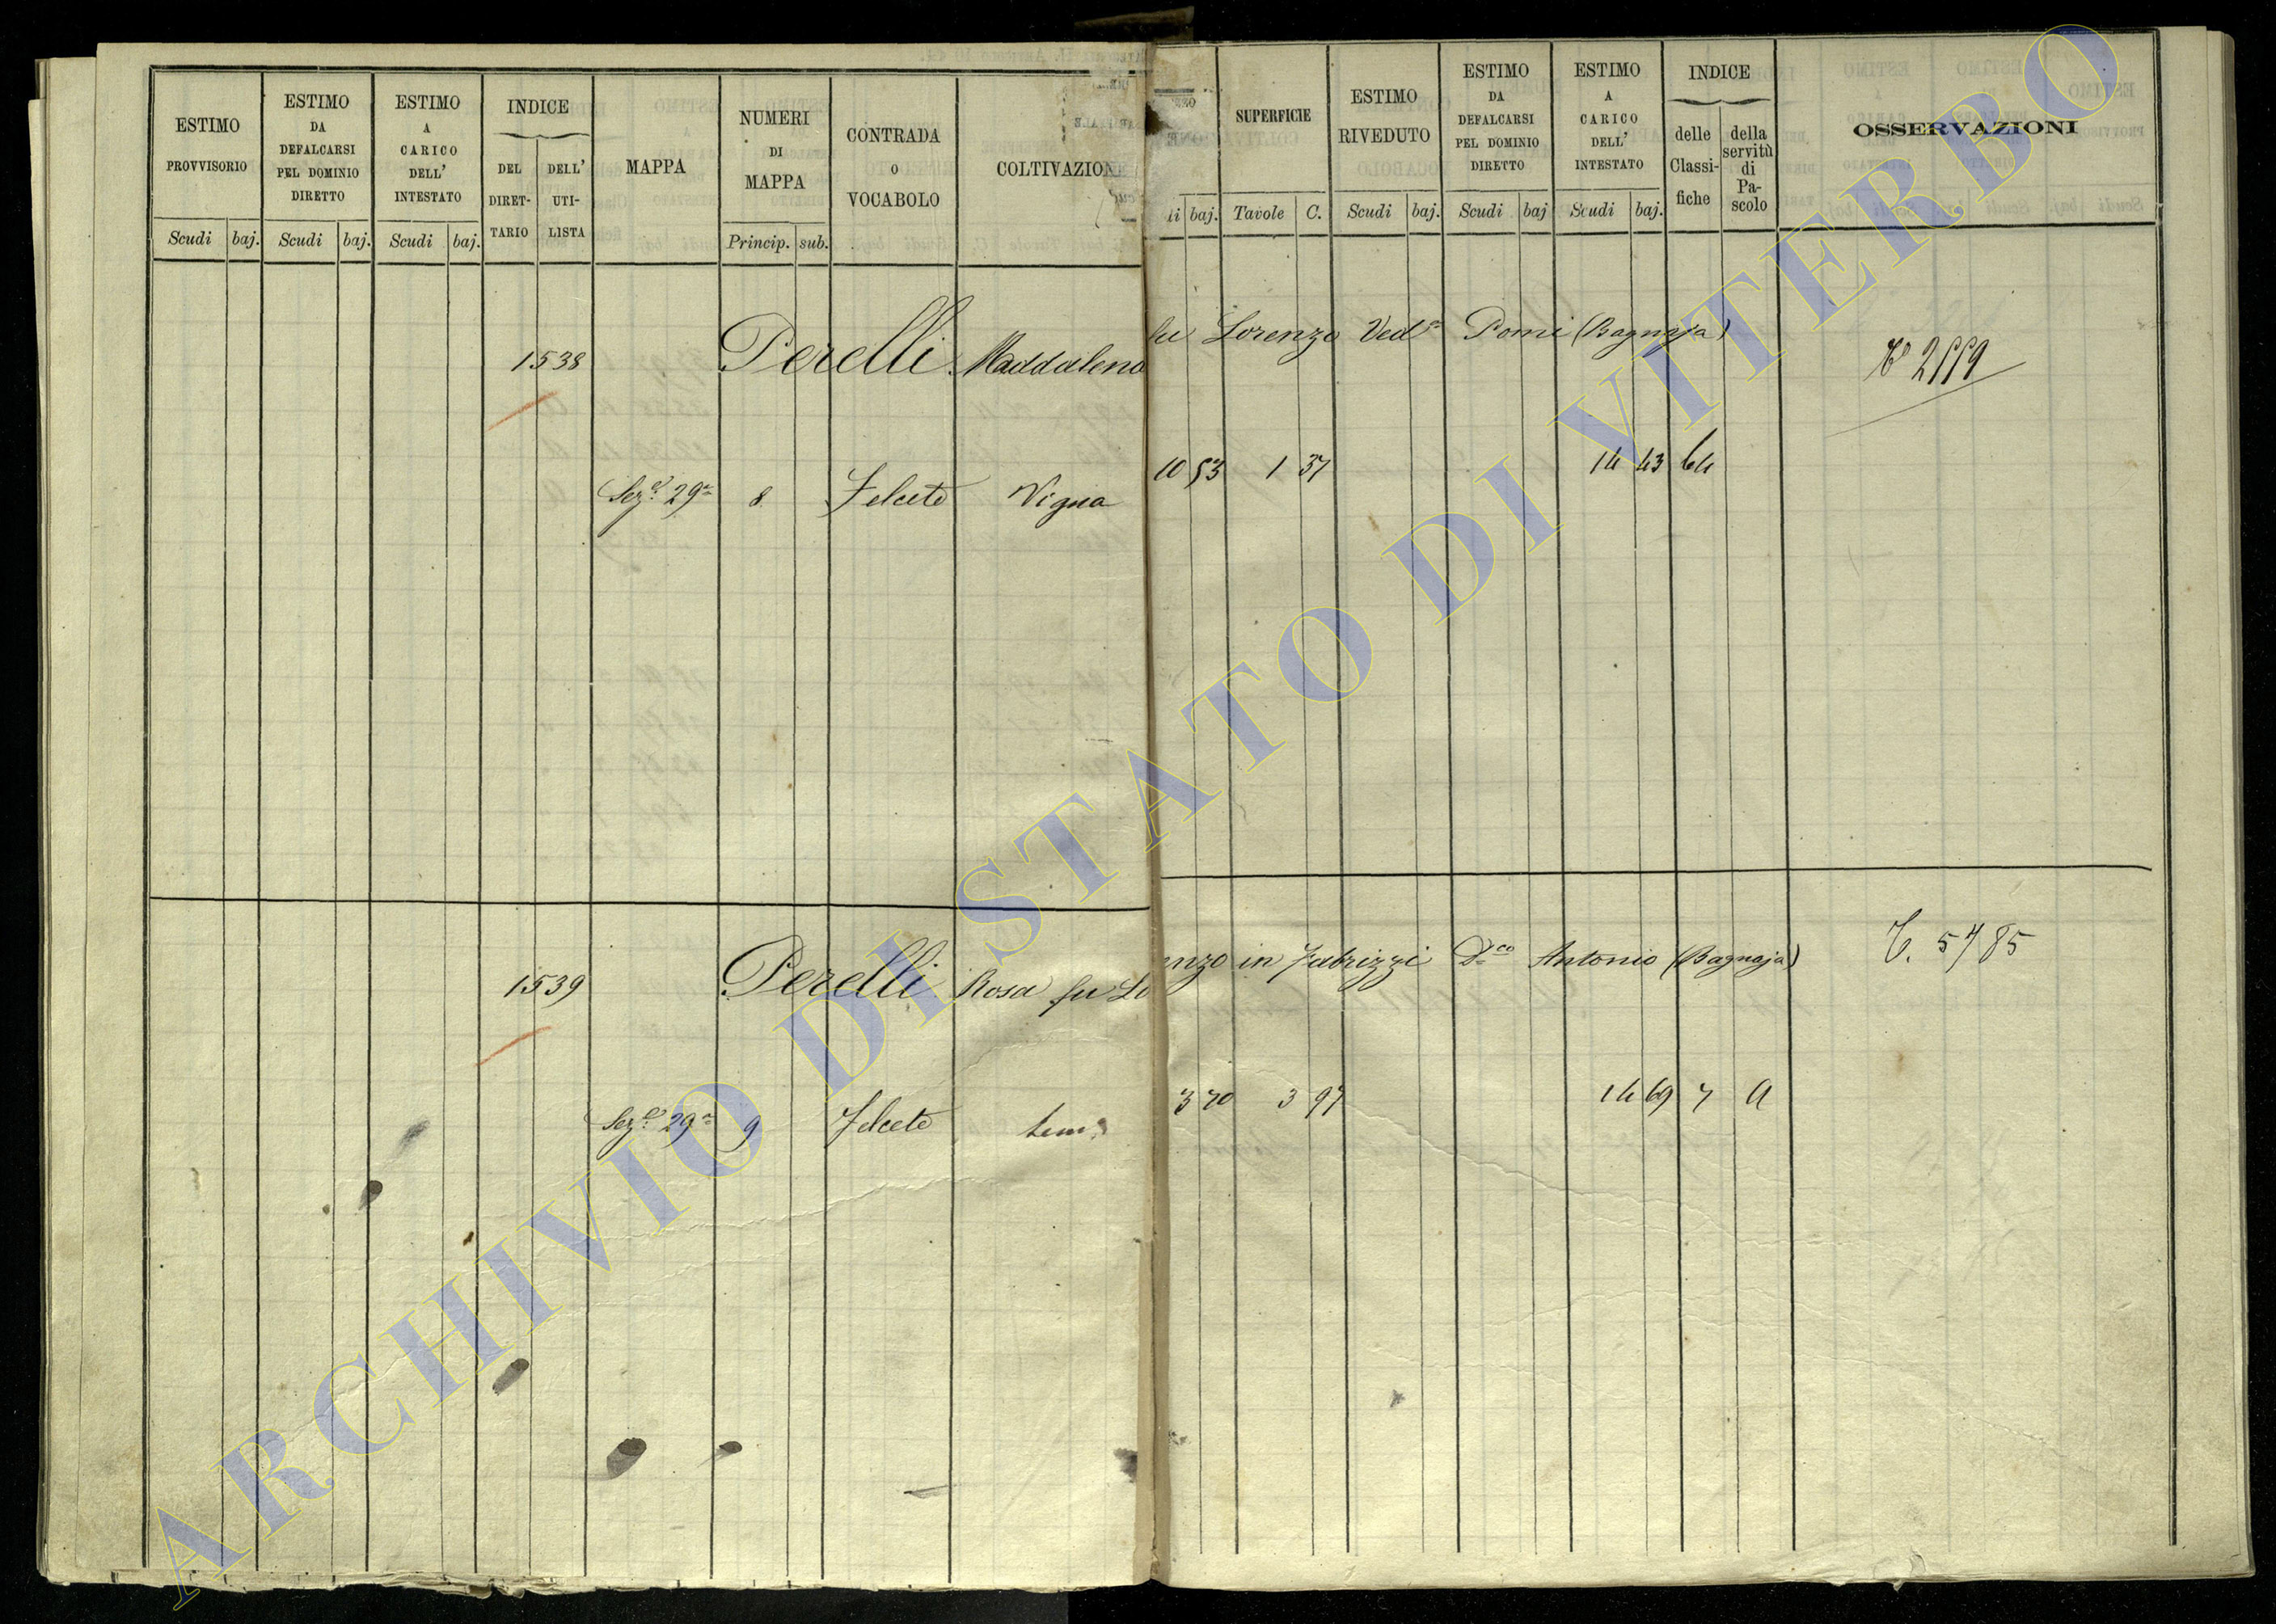 ESTIMO PROVVISORIO
Scudi baj.
ESTIMO DA DEFALCARSI PEL DOMINIO DIRETTO
Scudi baj.
ESTIMO A CARICO DELL' INTESTATO
Scudi baj.
INDICE
DEL DIRET-TARIO
DELL' UTI-LISTA
MAPPA
NUMERI DI MAPPA
Princip. sub.
CONTRADA O VOCABOLO
COLTIVAZION
ti baj.
SUPERFICIE
Tavole C.
ESTIMO RIVEDUTO
Scudi baj.
ESTIMO DA DEFALCARSI PEL DOMINIO DIRETTO
Scudi baj
ESTIMO A CARICO DELL' INTESTATO
Scudi baj.
INDICE
delle Classi-fiche
della servitù di Pa-scolo
OSSERVAZIONI
1538 Perelli Maddalena fu Lorenzo Ved.ª Pomi (Bagnaja)
Sez.e 29ª 8 Felceto Vigna 10 53 1 37 14 43 64
1539 Perelli Rosa fu Lorenzo in Fabrizzi D.co Antonio (Bagnaja) C. 5785
Sez.e 29ª 9 Felceto Sem. 3 70 3 97 14 69 7 a
ARCHIVIO DI STATO DI VITERBO